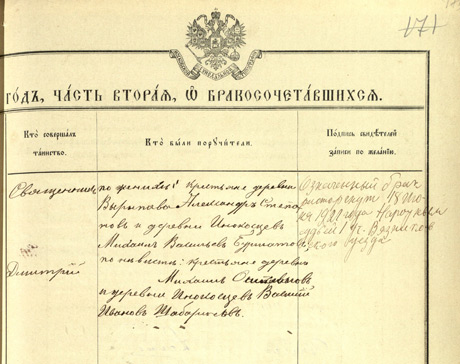 171
годъ, часть вторая, ѡ бракосочетавшихся.
Кто совершалъ таинство.
Кто были поручители.
Подпись свидѣтелей записи по желанію.
Священникъ
Дмитрій
по женихѣ: крестьяне деревни
Александръ Степа
новъ и деревни Инокосцевъ
Михаилъ Васильевъ
по невѣстѣ: крестьяне деревни
Михаилъ
и деревни Инокосцевъ Василій
Ивановъ Шабарговъ.
Означенный бракъ
расторгнут 15 Июня
1921 года Народным
судьей 1 уч. Вязников
ского уезда